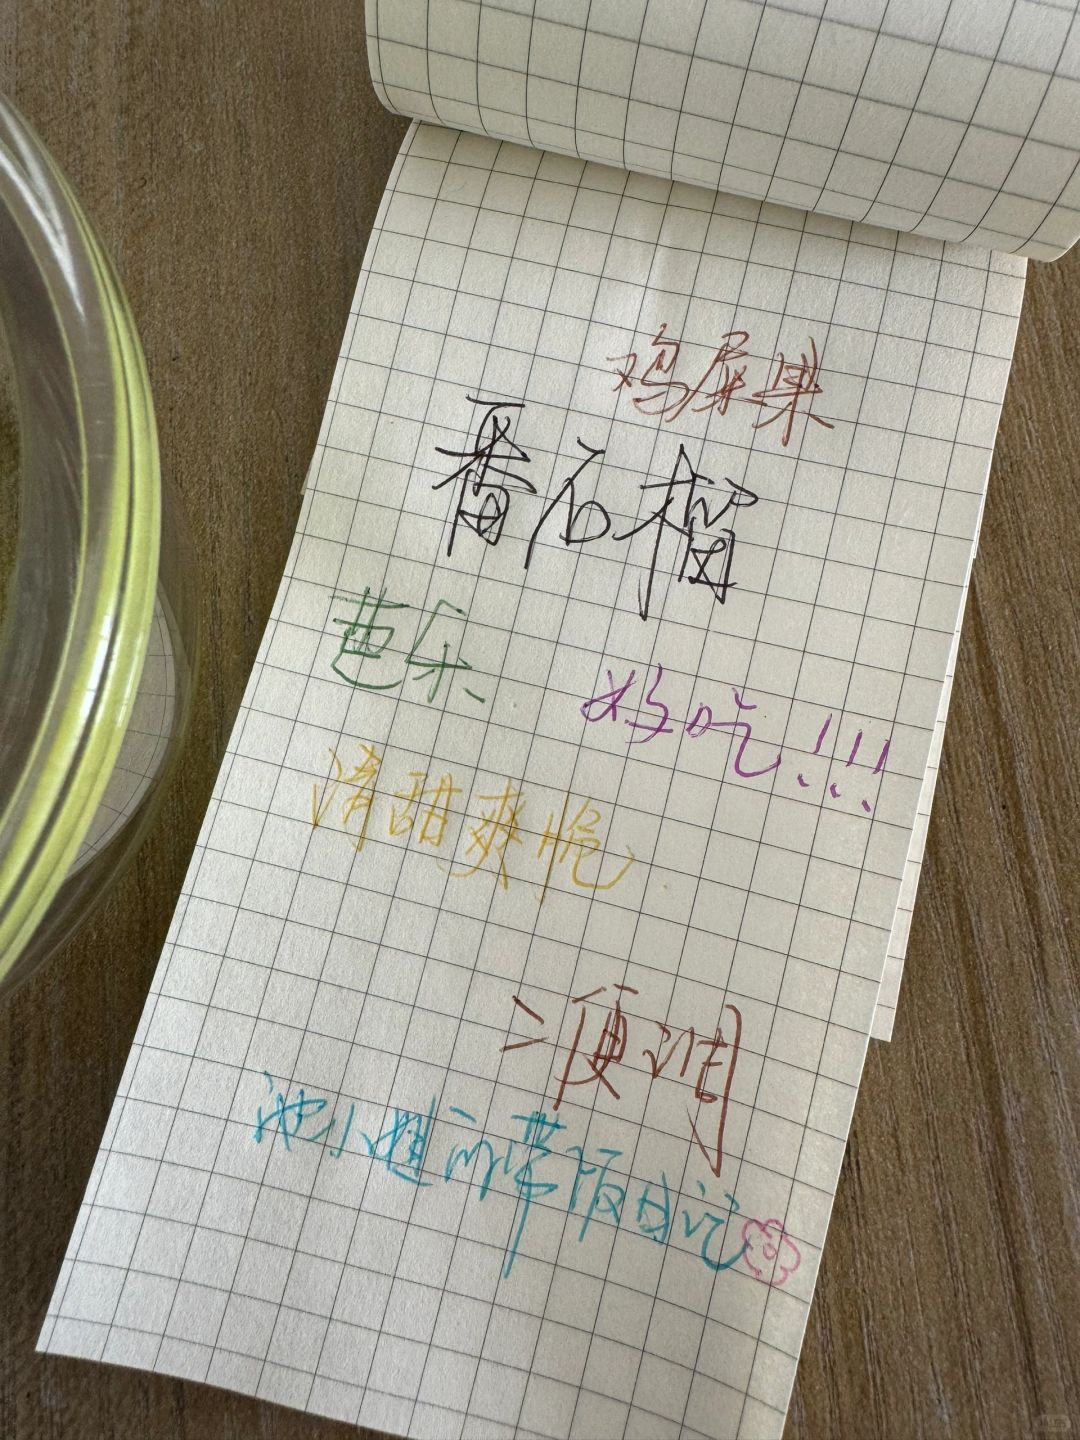 鸡屎果
番石榴
芭乐
好吃!!!
清甜爽脆
=便调
池小姐的带饭日记